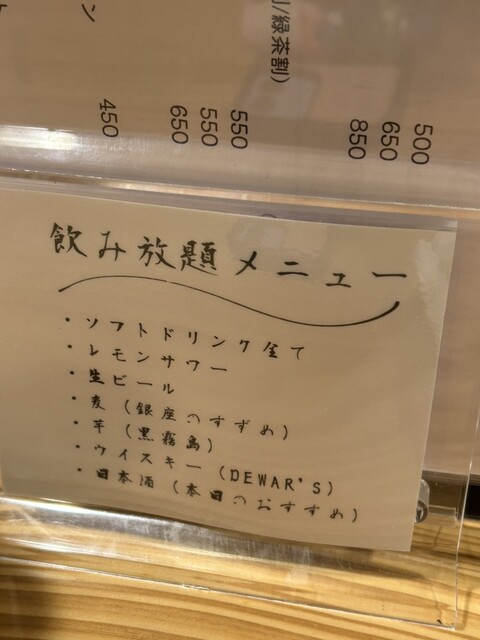 ン
割/緑茶割)
500
650
850
550
550
650
450
飲み放題メニュー
・ソフトドリンク全て
・レモンサワー
・生ビール
・麦(銀座のすずめ)
・芋(黒霧島)
・ウイスキー(DEWAR'S)
・日本酒(本日のおすすめ)